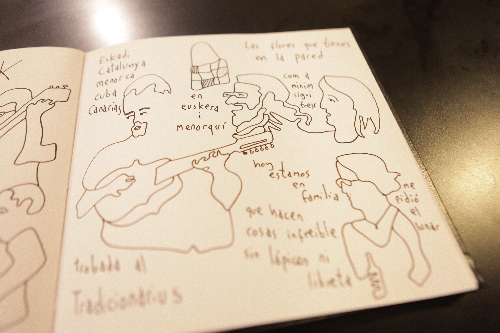 Euskadi
Catalunya
menorca
cuba
Canarias
en
euskera
i
menorquí
Las flores que tienes
en la pared
com a
minim
sigui
hoy
estamos
en
familia
que hacen
cosas increible
sin lápices ni
libreta
me
pidió
el
lunar
trobada al
Tradicionàrius